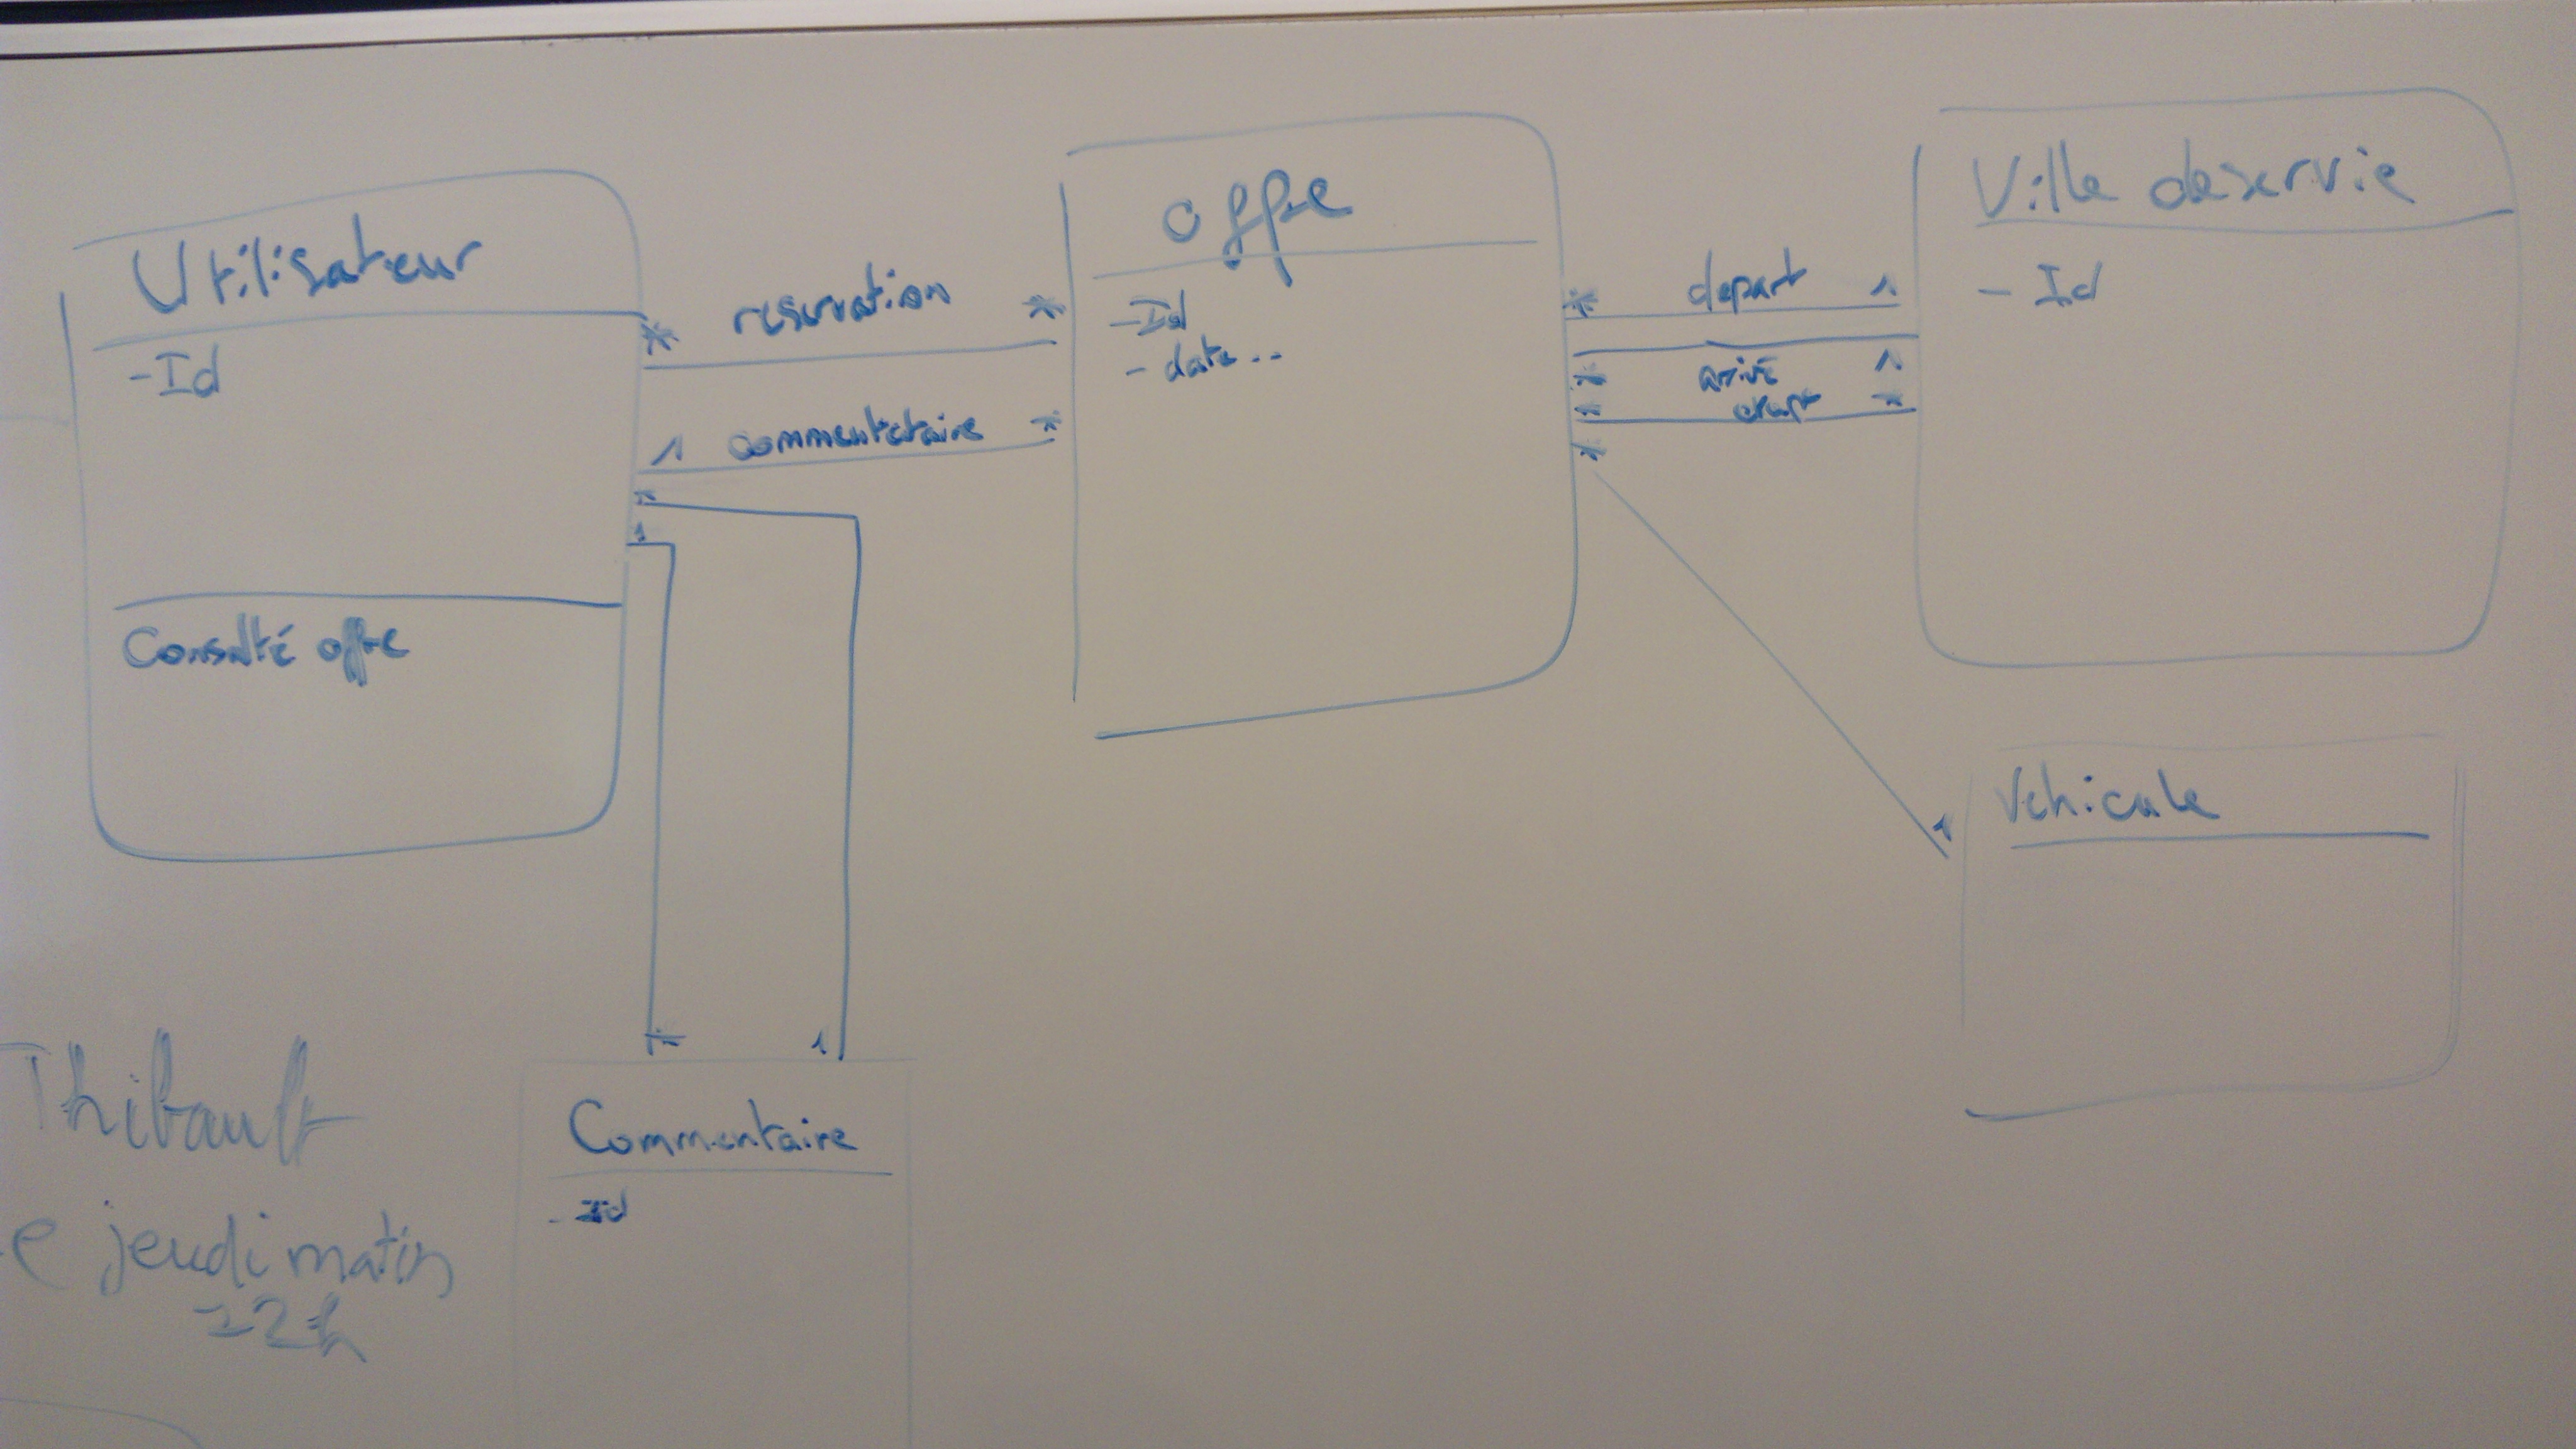 Utilisateur
-Id
Consulté offre
* reservation *
1 commentataire *
*
1
Offre
-Id
- date ..
* depart 1
* arrivé 1
* *
*
1
Ville deservie
- Id
Vehicule
* 1
Commentaire
- Id
Thibault
e jeudi matin